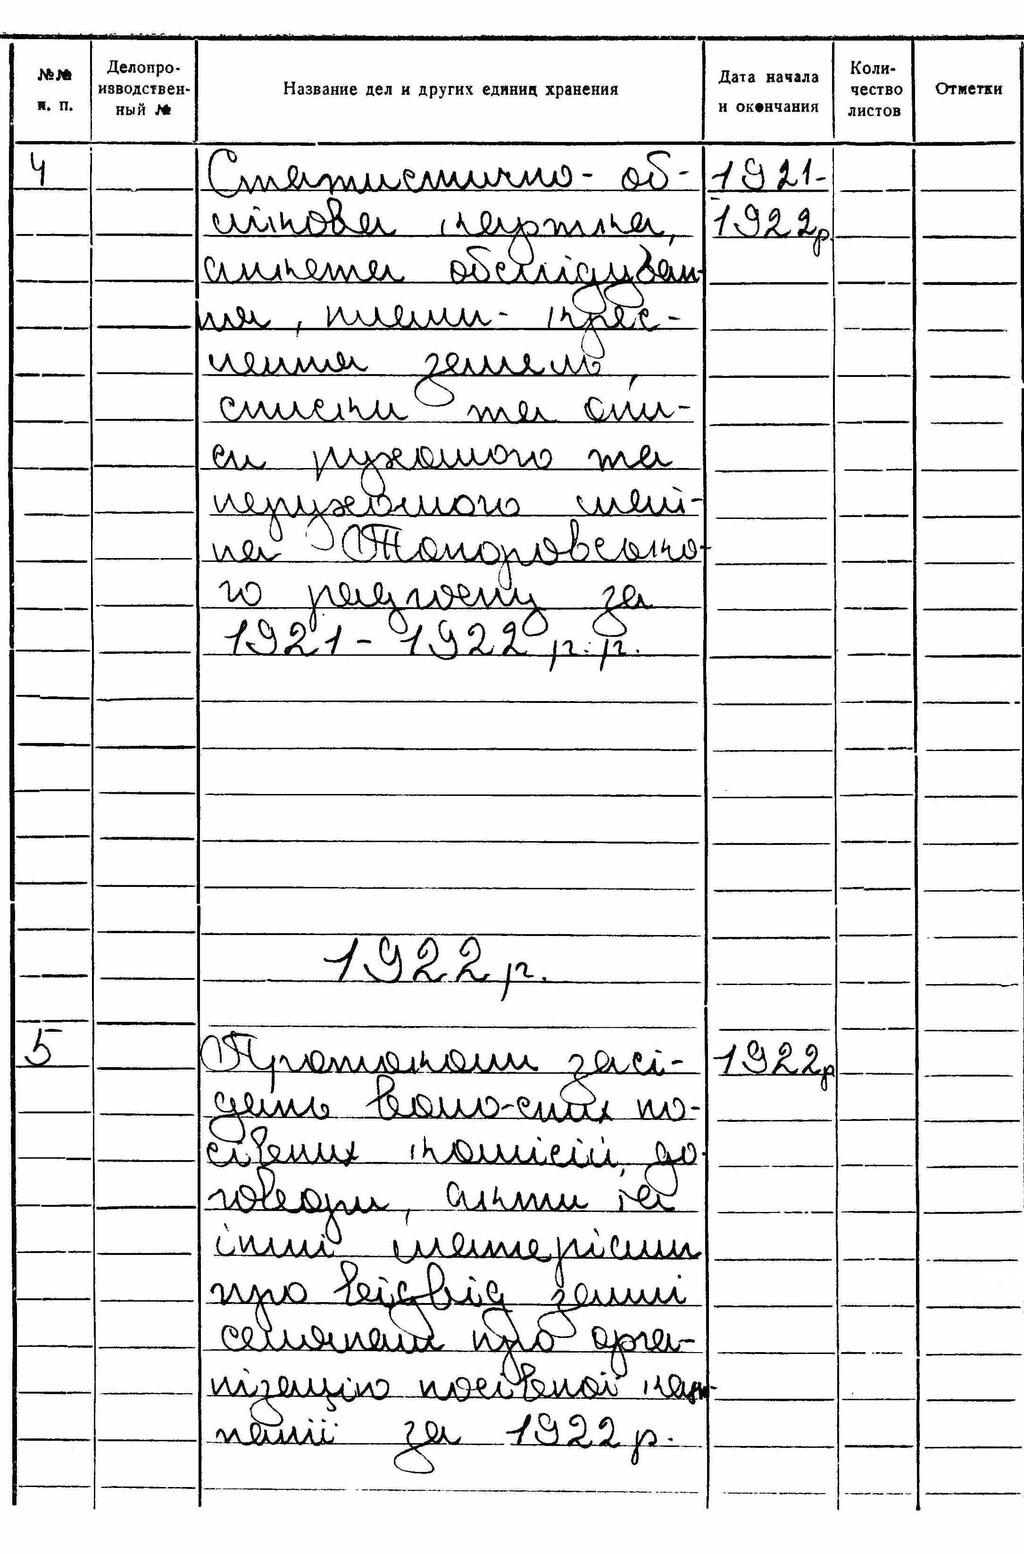 №№ п. п.
Делопро-изводствен-ный №
Название дел и других единиц хранения
Дата начала и окончания
Коли-чество листов
Отметки
4 Статистично-об- 1921-
лікова картка, 1922р.
анкета обслідуван-
ня, плани-крес-
лення земель,
списки та опи-
си рухомого та
нерухомого май-
на Топоровсько-
го радгоспу за
1921-1922 р.р.
1922р.
5 Протоколи засі- 1922р
дань волосних по-
сівних комісій, до-
говори, акти та
інші матеріали
про відвід землі
селянам про орга-
нізацію посівної кам-
панії за 1922р.